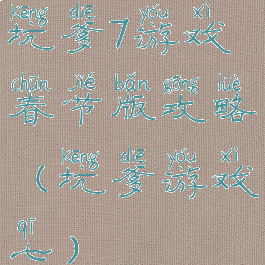 kēng diē yóu xì
坑爹7游戏
chūn jié bǎn gōng lüè
春节版攻略
kēng diē yóu xì
(坑爹游戏
qī
七)